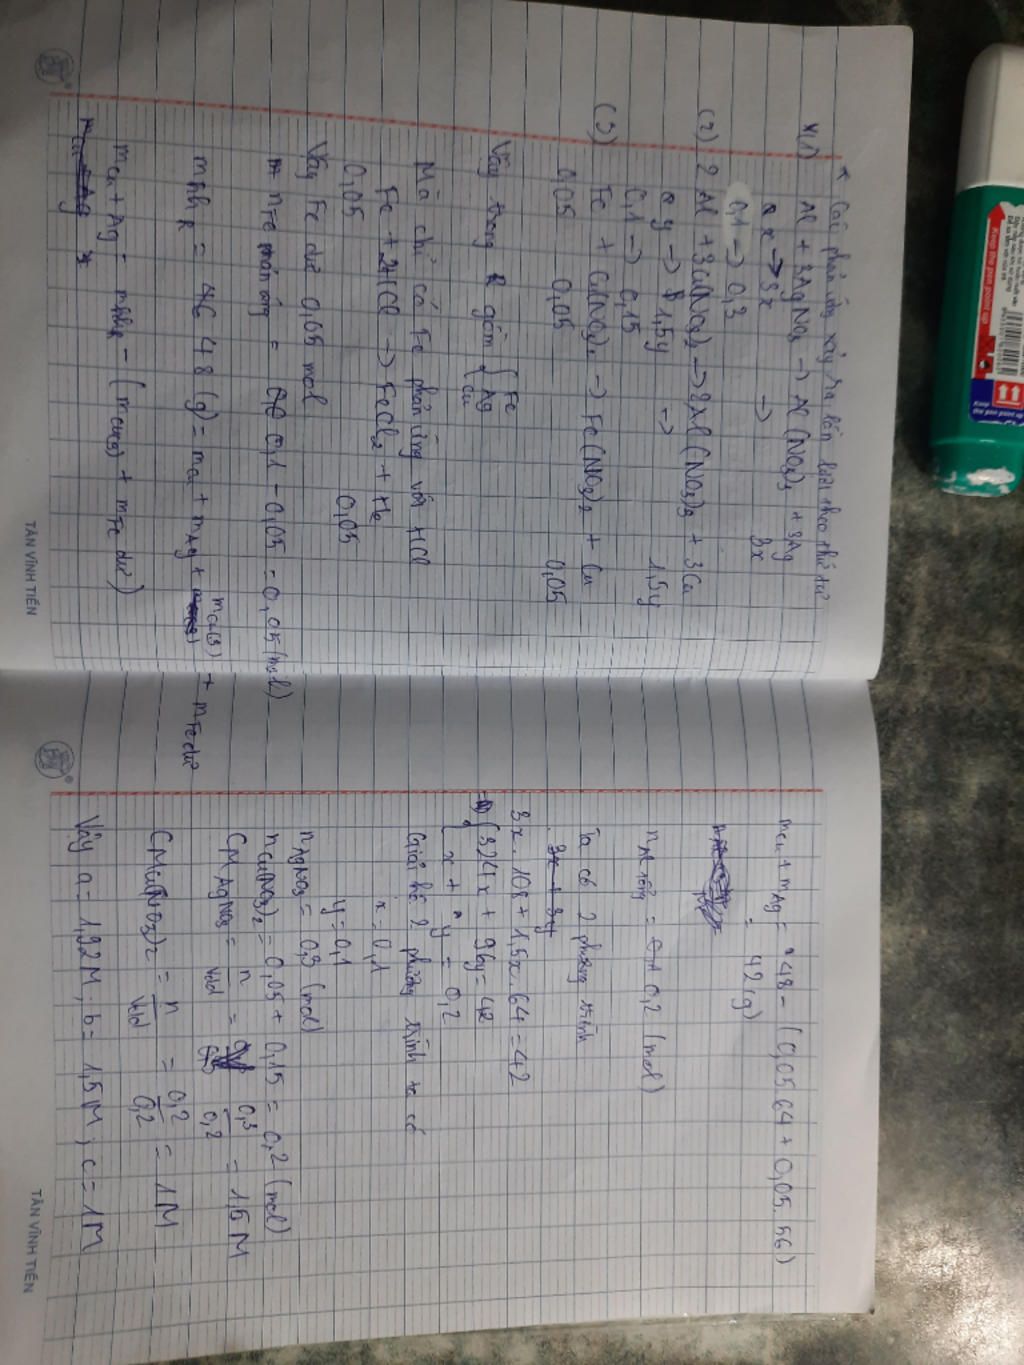 * Các phản ứng xảy ra lần lượt theo thứ tự
(1) Al + 3AgNO3 -> Al(NO3)3 + 3Ag
x -> 3x -> 3x
0,1 -> 0,3
(2) 2Al + 3Cu(NO3)2 -> 2Al(NO3)3 + 3Cu
y -> 1,5y -> 1,5y
0,1 -> 0,15
(3) Fe + Cu(NO3)2 -> Fe(NO3)2 + Cu
0,05 0,05 0,05
Vậy trong R gồm { Fe Ag Cu
Mà chỉ có Fe phản ứng với HCl
Fe + 2HCl -> FeCl2 + H2
0,05 0,05
Vậy Fe dư 0,05 mol
nFe phản ứng = 0,1 - 0,05 = 0,05 (mol)
mhh R = 48 (g) = mCu + mAg + mCu(3) + mFe dư
mCu + Ag = mhhR - (mCu(3) + mFe dư)
TÂN VĨNH TIẾN
mCu + mAg = 48 - (0,05.64 + 0,05.56)
= 42 (g)
nAl = 0,2 (mol)
Ta có 2 phương trình
3x.108 + 1,5x.64 = 42
{ 324x + 96y = 42
x + y = 0,2
Giải hệ 2 phương trình ta có
x = 0,1
y = 0,1
nAgNO3 = 0,3 (mol)
nCu(NO3)2 = 0,05 + 0,15 = 0,2 (mol)
CM AgNO3 = n/Vdd = 0,3/0,2 = 1,5M
CM Cu(NO3)2 = n/Vdd = 0,2/0,2 = 1M
Vậy a = 1,22M; b = 1,5M; c = 1M
TÂN VĨNH TIẾN